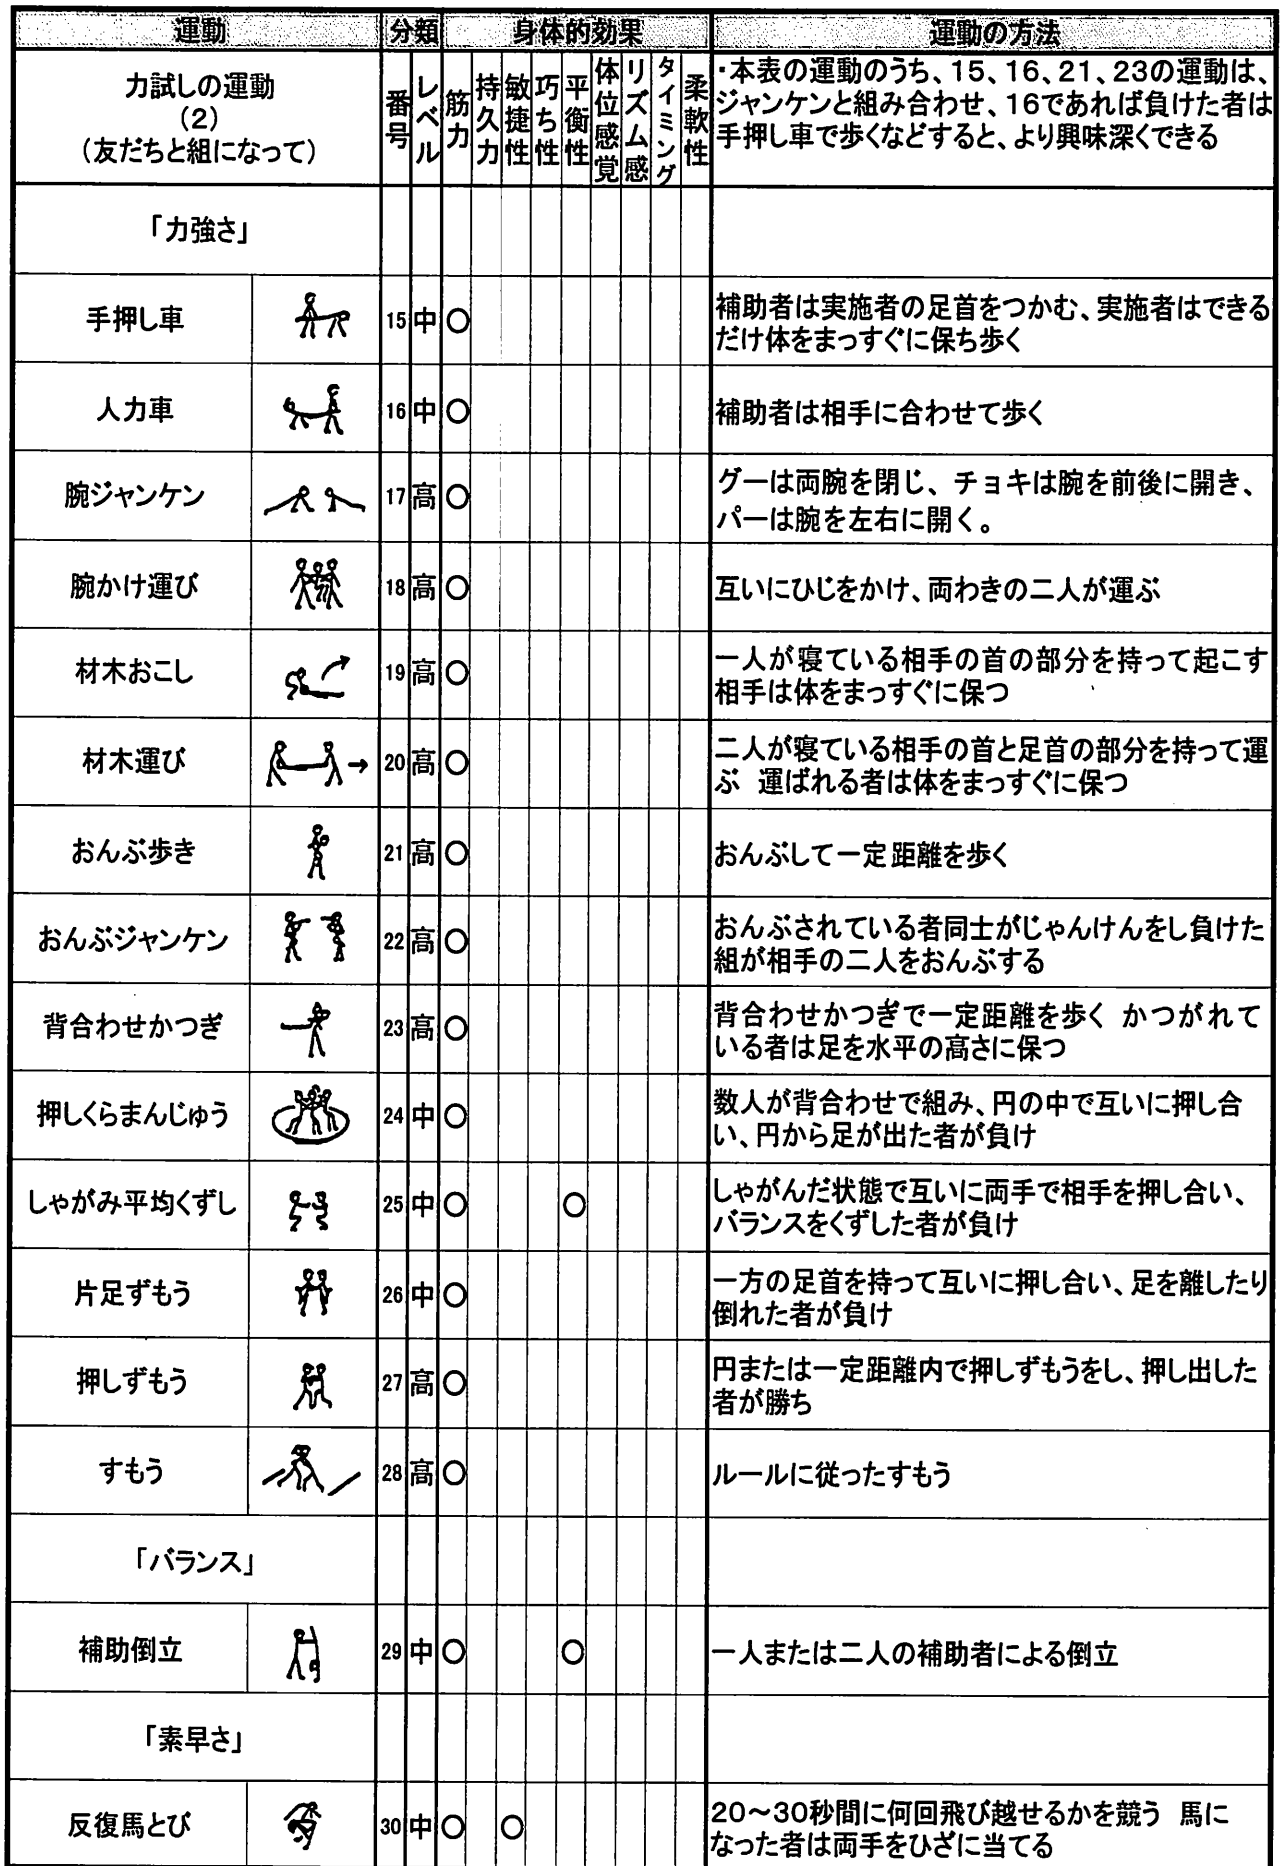 運動 分類 身体的効果 運動の方法
力試しの運動
(2)
(友だちと組になって)
番号 レベル 筋力 持久力 敏捷性 巧ち性 平衡性 体位感覚 リズム感 タイミング 柔軟性
・本表の運動のうち、15、16、21、23の運動は、
ジャンケンと組み合わせ、16であれば負けた者は
手押し車で歩くなどすると、より興味深くできる
「力強さ」
手押し車 15 中 ○ 補助者は実施者の足首をつかむ、実施者はできる
だけ体をまっすぐに保ち歩く
人力車 16 中 ○ 補助者は相手に合わせて歩く
腕ジャンケン 17 高 ○ グーは両腕を閉じ、チョキは腕を前後に開き、
パーは腕を左右に開く。
腕かけ運び 18 高 ○ 互いにひじをかけ、両わきの二人が運ぶ
材木おこし 19 高 ○ 一人が寝ている相手の首の部分を持って起こす
相手は体をまっすぐに保つ
材木運び 20 高 ○ 二人が寝ている相手の首と足首の部分を持って運
ぶ 運ばれる者は体をまっすぐに保つ
おんぶ歩き 21 高 ○ おんぶして一定距離を歩く
おんぶジャンケン 22 高 ○ おんぶされている者同士がじゃんけんをし負けた
組が相手の二人をおんぶする
背合わせかつぎ 23 高 ○ 背合わせかつぎで一定距離を歩く かつがれて
いる者は足を水平の高さに保つ
押しくらまんじゅう 24 中 ○ 数人が背合わせで組み、円の中で互いに押し合
い、円から足が出た者が負け
しゃがみ平均くずし 25 中 ○ ○ しゃがんだ状態で互いに両手で相手を押し合い、
バランスをくずした者が負け
片足ずもう 26 中 ○ 一方の足首を持って互いに押し合い、足を離したり
倒れた者が負け
押しずもう 27 高 ○ 円または一定距離内で押しずもうをし、押し出した
者が勝ち
すもう 28 高 ○ ルールに従ったすもう
「バランス」
補助倒立 29 中 ○ ○ 一人または二人の補助者による倒立
「素早さ」
反復馬とび 30 中 ○ ○ 20～30秒間に何回飛び越せるかを競う 馬に
なった者は両手をひざに当てる